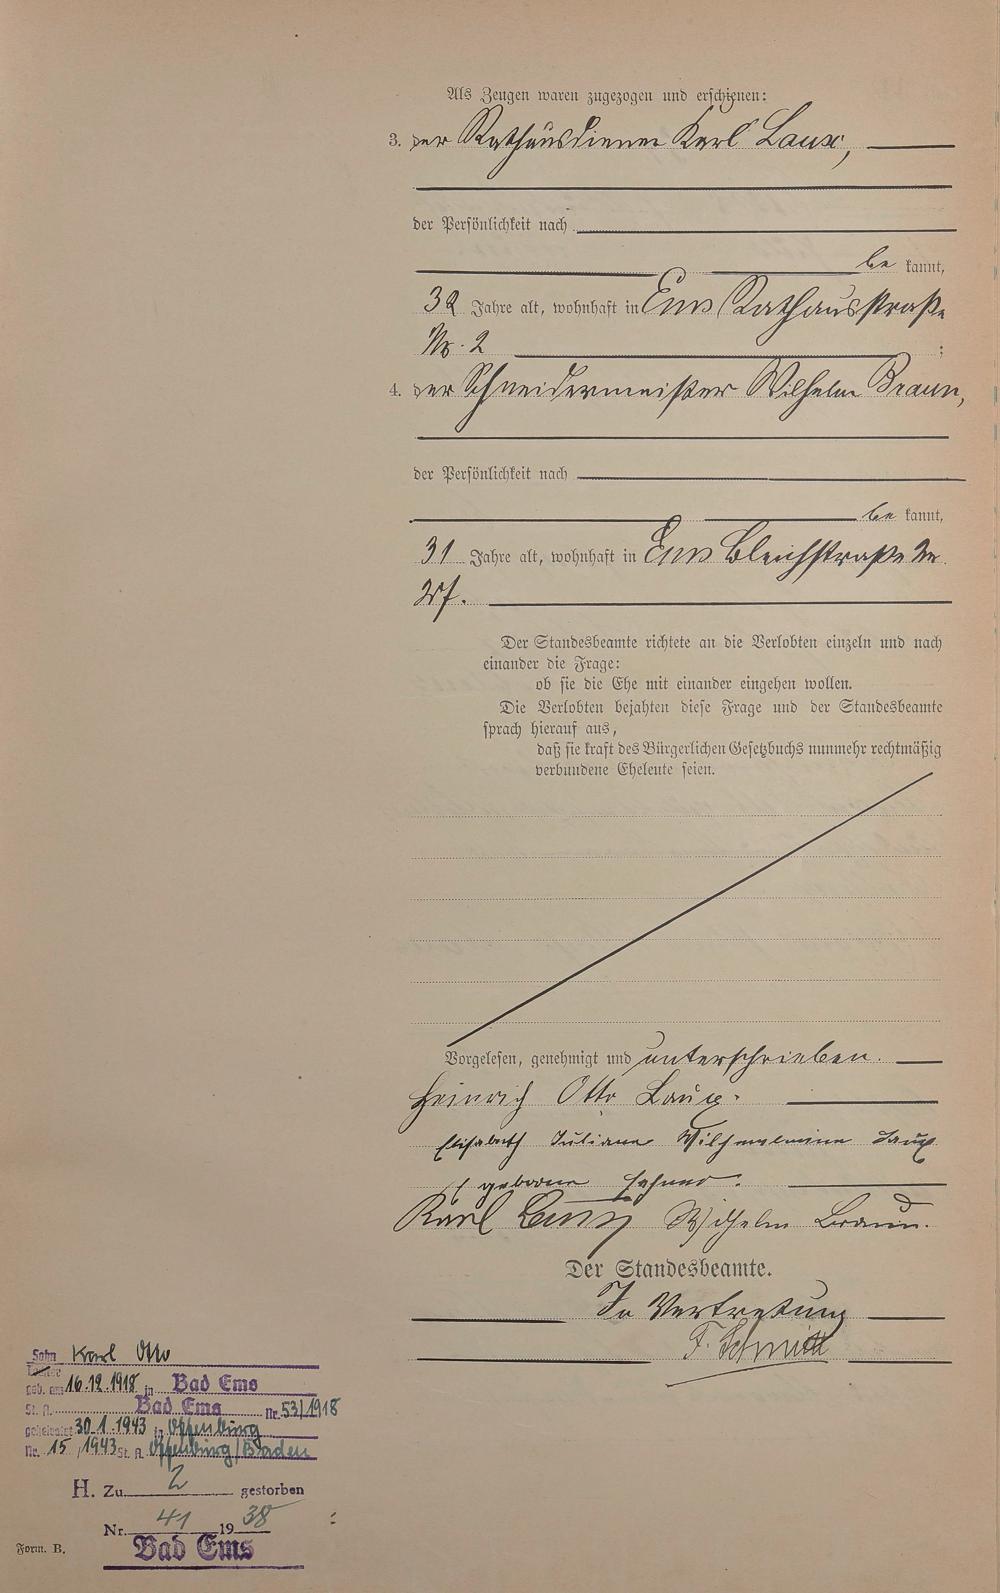 Als Zeugen waren zugezogen und erschienen:
3. der Rathausdiener Karl Laux,
der Persönlichkeit nach
be kannt,
32 Jahre alt, wohnhaft in Ems Rathausstraße
Nr. 2 ;
4. der Schneidermeister Wilhelm Braun,
der Persönlichkeit nach
be kannt,
31 Jahre alt, wohnhaft in Ems Bleichstraße Nr.
Der Standesbeamte richtete an die Verlobten einzeln und nach
einander die Frage:
ob sie die Ehe mit einander eingehen wollen.
Die Verlobten bejahten diese Frage und der Standesbeamte
sprach hierauf aus,
daß sie kraft des Bürgerlichen Gesetzbuchs nunmehr rechtmäßig
verbundene Eheleute seien.
Vorgelesen, genehmigt und unterschrieben.
Heinrich Otto Laux.
Elisabeth Juliane Wilhelmine Laux
geborene
Karl Laux Wilhelm Braun.
Der Standesbeamte.
In Vertretung
F. Schmitt
Sohn Karl Otto
Tochter
geb. am 16.12.1918 in Bad Ems
St. A. Bad Ems Nr. 53/1918
geheiratet 30.1.1943 in Offenburg
Nr. 15/1943 St. A. Offenburg/Baden
H. Zu 2 gestorben
Nr. 41 1938
Bad Ems
Form. B.